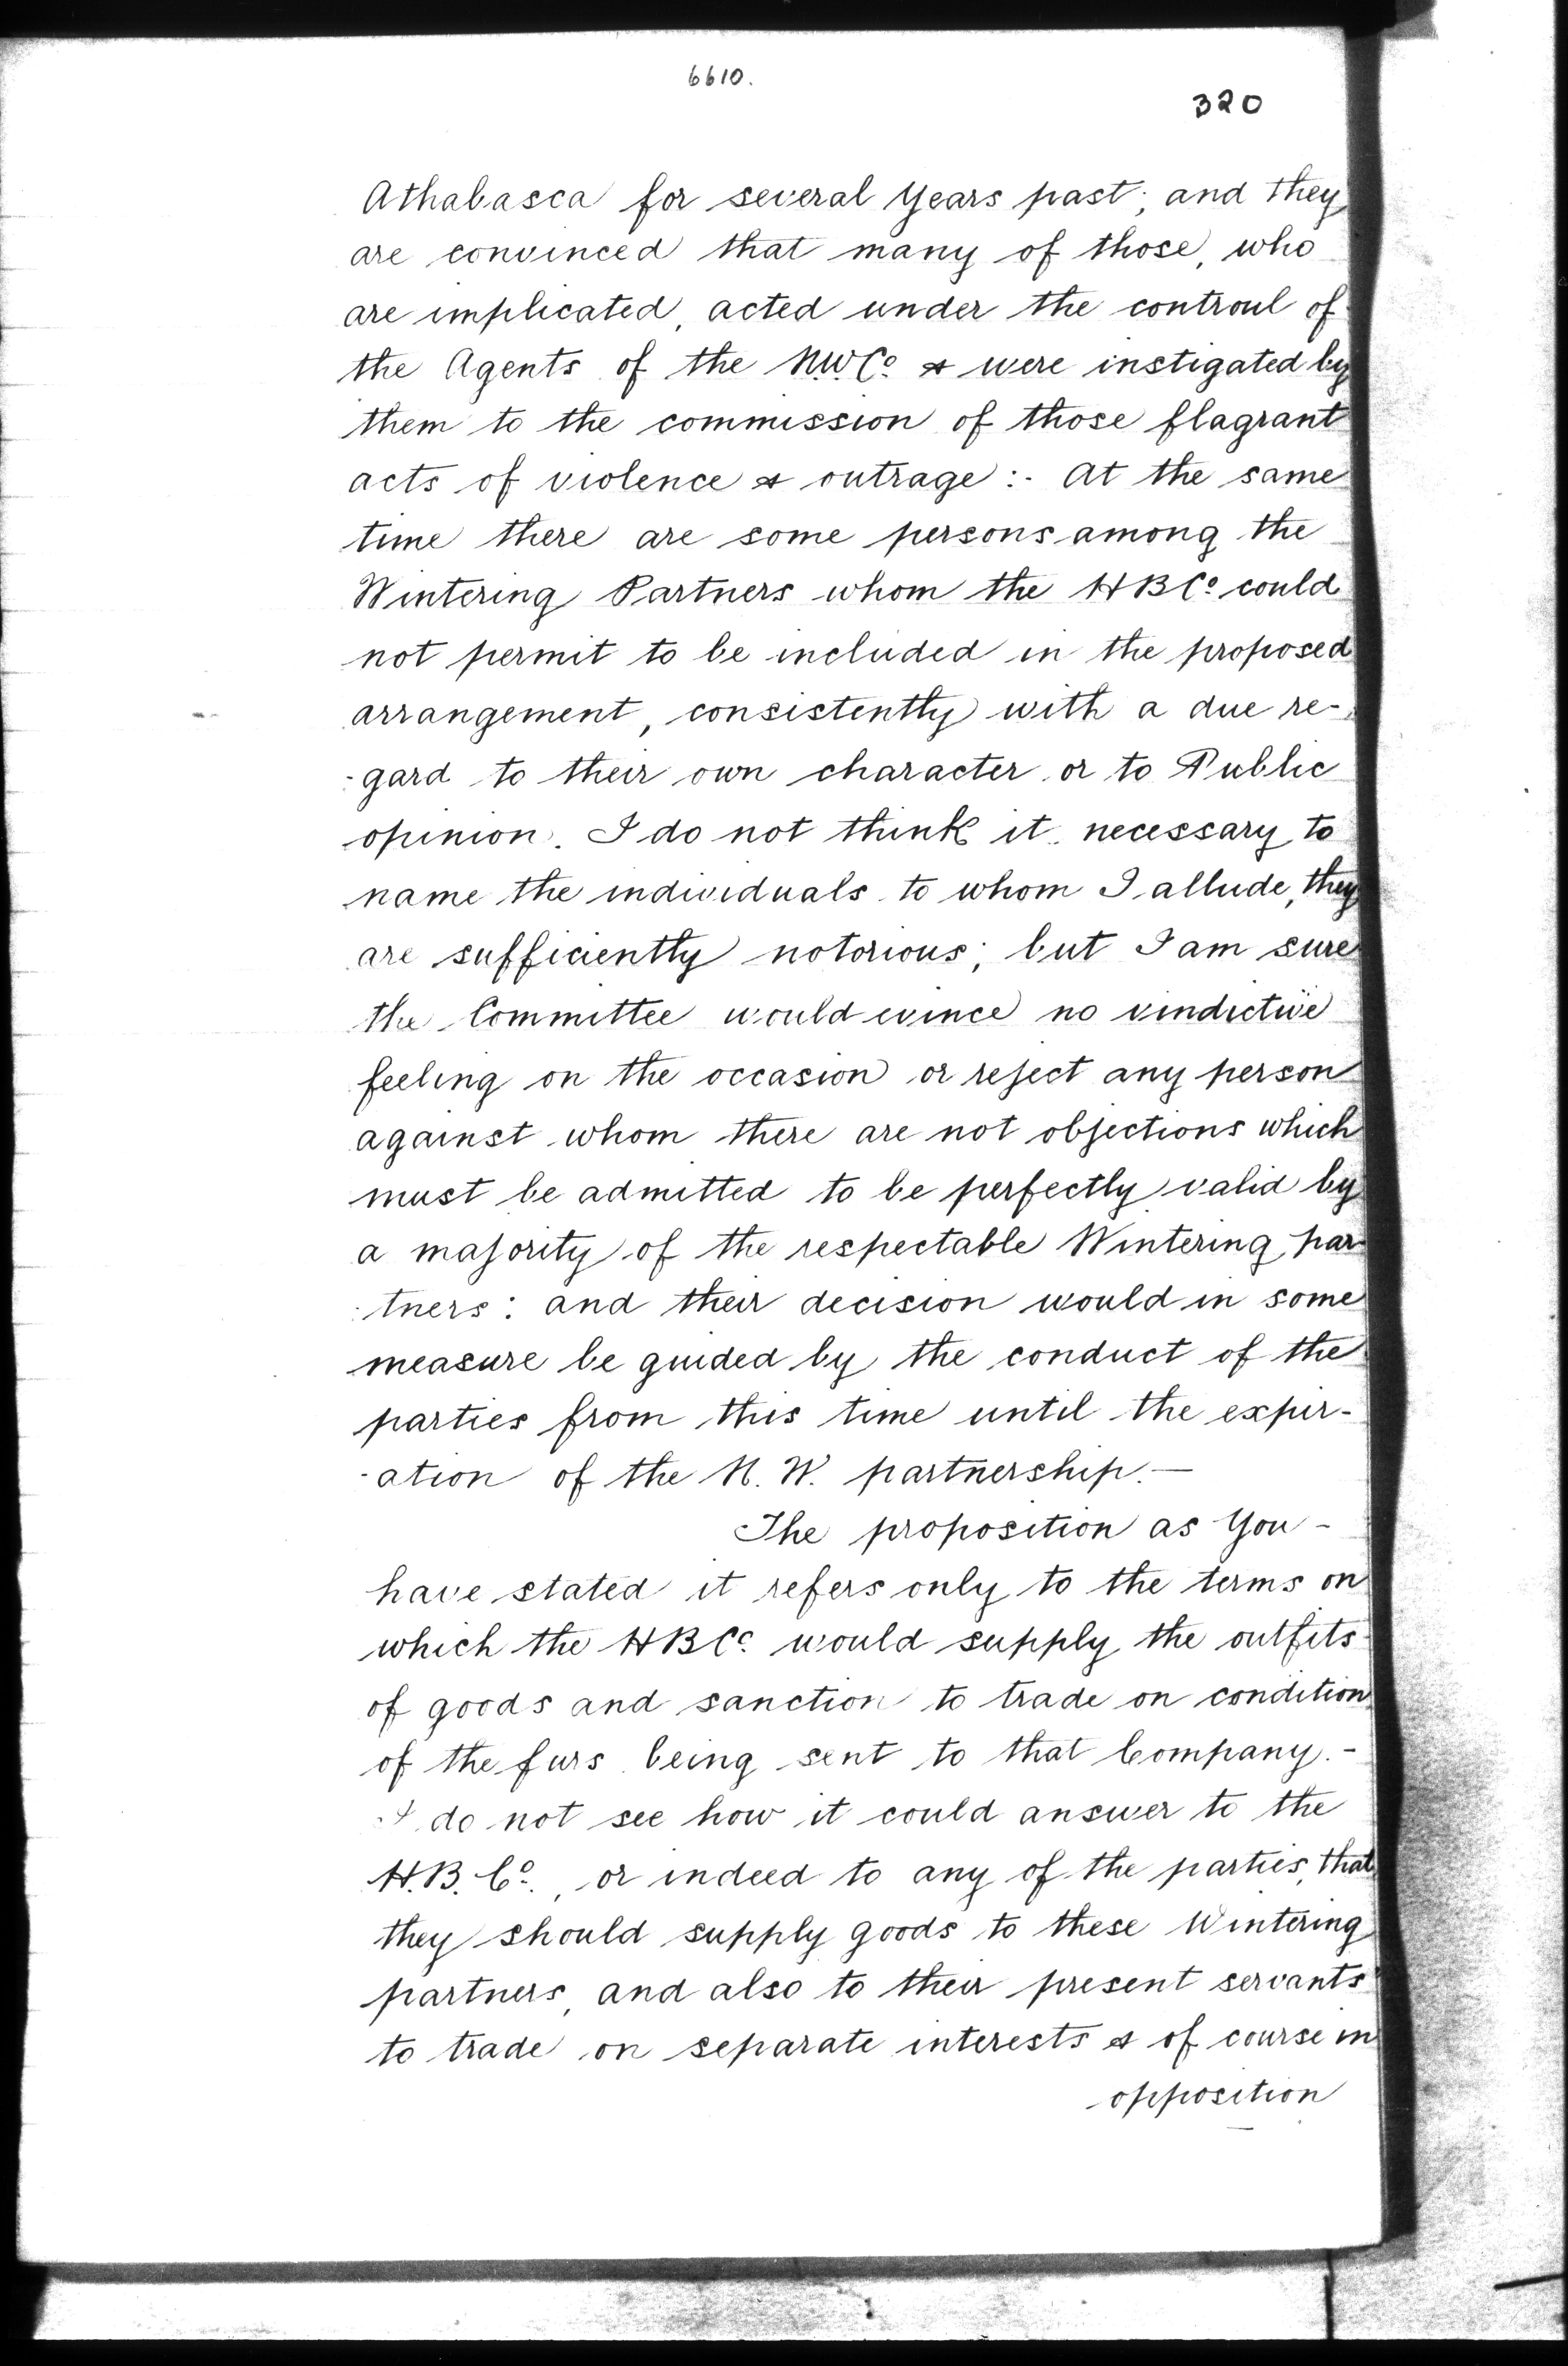 6610.
320
Athabasca for several Years past; and they
are convinced that many of those, who
are implicated, acted under the controul of
the Agents of the N.W.Co. & were instigated by
them to the commission of those flagrant
acts of violence & outrage:- At the same
time there are some persons among the
Wintering Partners whom the HBCo. could
not permit to be included in the proposed
arrangement, consistently with a due re-
-gard to their own character or to Public
opinion. I do not think it necessary to
name the individuals to whom I allude, they
are sufficiently notorious; but I am sure
the Committee would evince no vindictive
feeling on the occasion or reject any person
against whom there are not objections which
must be admitted to be perfectly valid by
a majority of the respectable Wintering par-
-tners: and their decision would in some
measure be guided by the conduct of the
parties from this time until the expir-
-ation of the N. W. partnership.—
The proposition as You -
have stated it refers only to the terms on
which the HBCo. would supply the outfits
of goods and sanction to trade on condition
of the furs being sent to that Company.-
I do not see how it could answer to the
H.B. Co., or indeed to any of the parties, that
they should supply goods to these Wintering
partners, and also to their present servants
to trade on separate interests & of course in
opposition